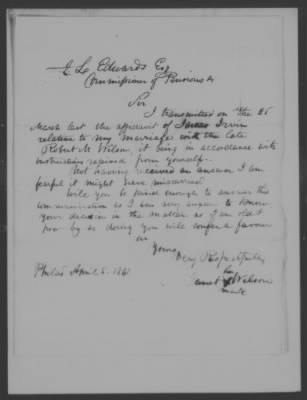 J. L. Edwards Esq
Commissioner of Pensions
Sir
I transmitted on the 26
March last the affidavit of James Irvin
relative to my marriage with the late
Robert M. Wilson, it being in accordance with
instructions received from yourself.
Not having received an answer I am
fearful it might have miscarried
Will you be kind enough to answer this
communication as I am very anxious to know
your decision in the matter as I am old &
poor by so doing you will confer a favour
on
Yours
Very Respectfully
her
Janet X Wilson
mark
Philad April 5. 1841